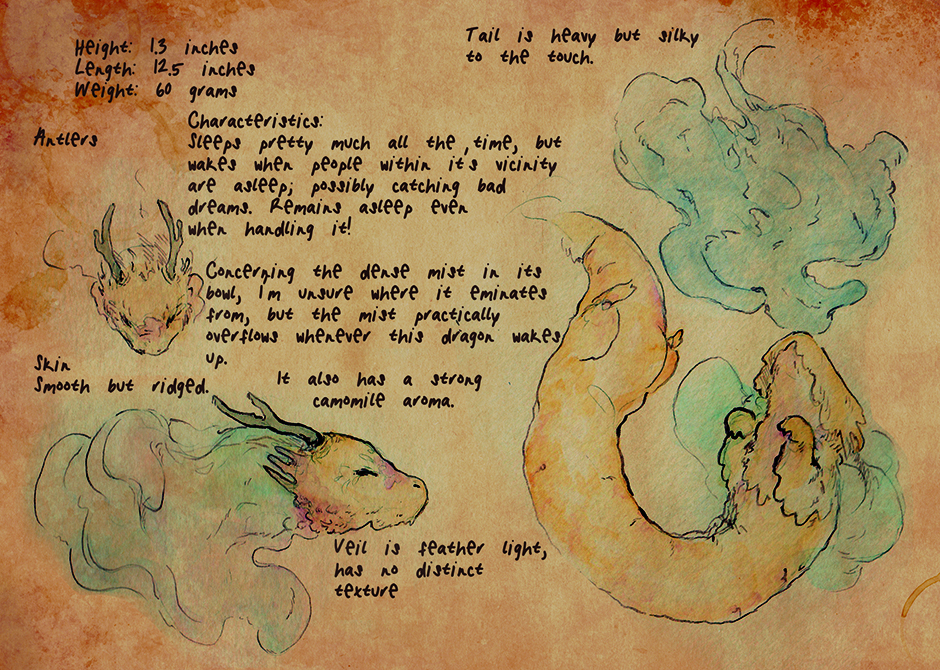 Height: 1.3 inches
Length: 12.5 inches
Weight: 60 grams
Tail is heavy but silky
to the touch.
Antlers
Characteristics:
Sleeps pretty much all the , time, but
wakes when people within it's vicinity
are asleep; possibly catching bad
dreams. Remains asleep even
when handling it!
Concerning the dense mist in its
bowl, I'm unsure where it eminates
from, but the mist practically
overflows whenever this dragon wakes
up.
Skin
Smooth but ridged.
It also has a strong
camomile aroma.
Veil is feather light,
has no distinct
texture